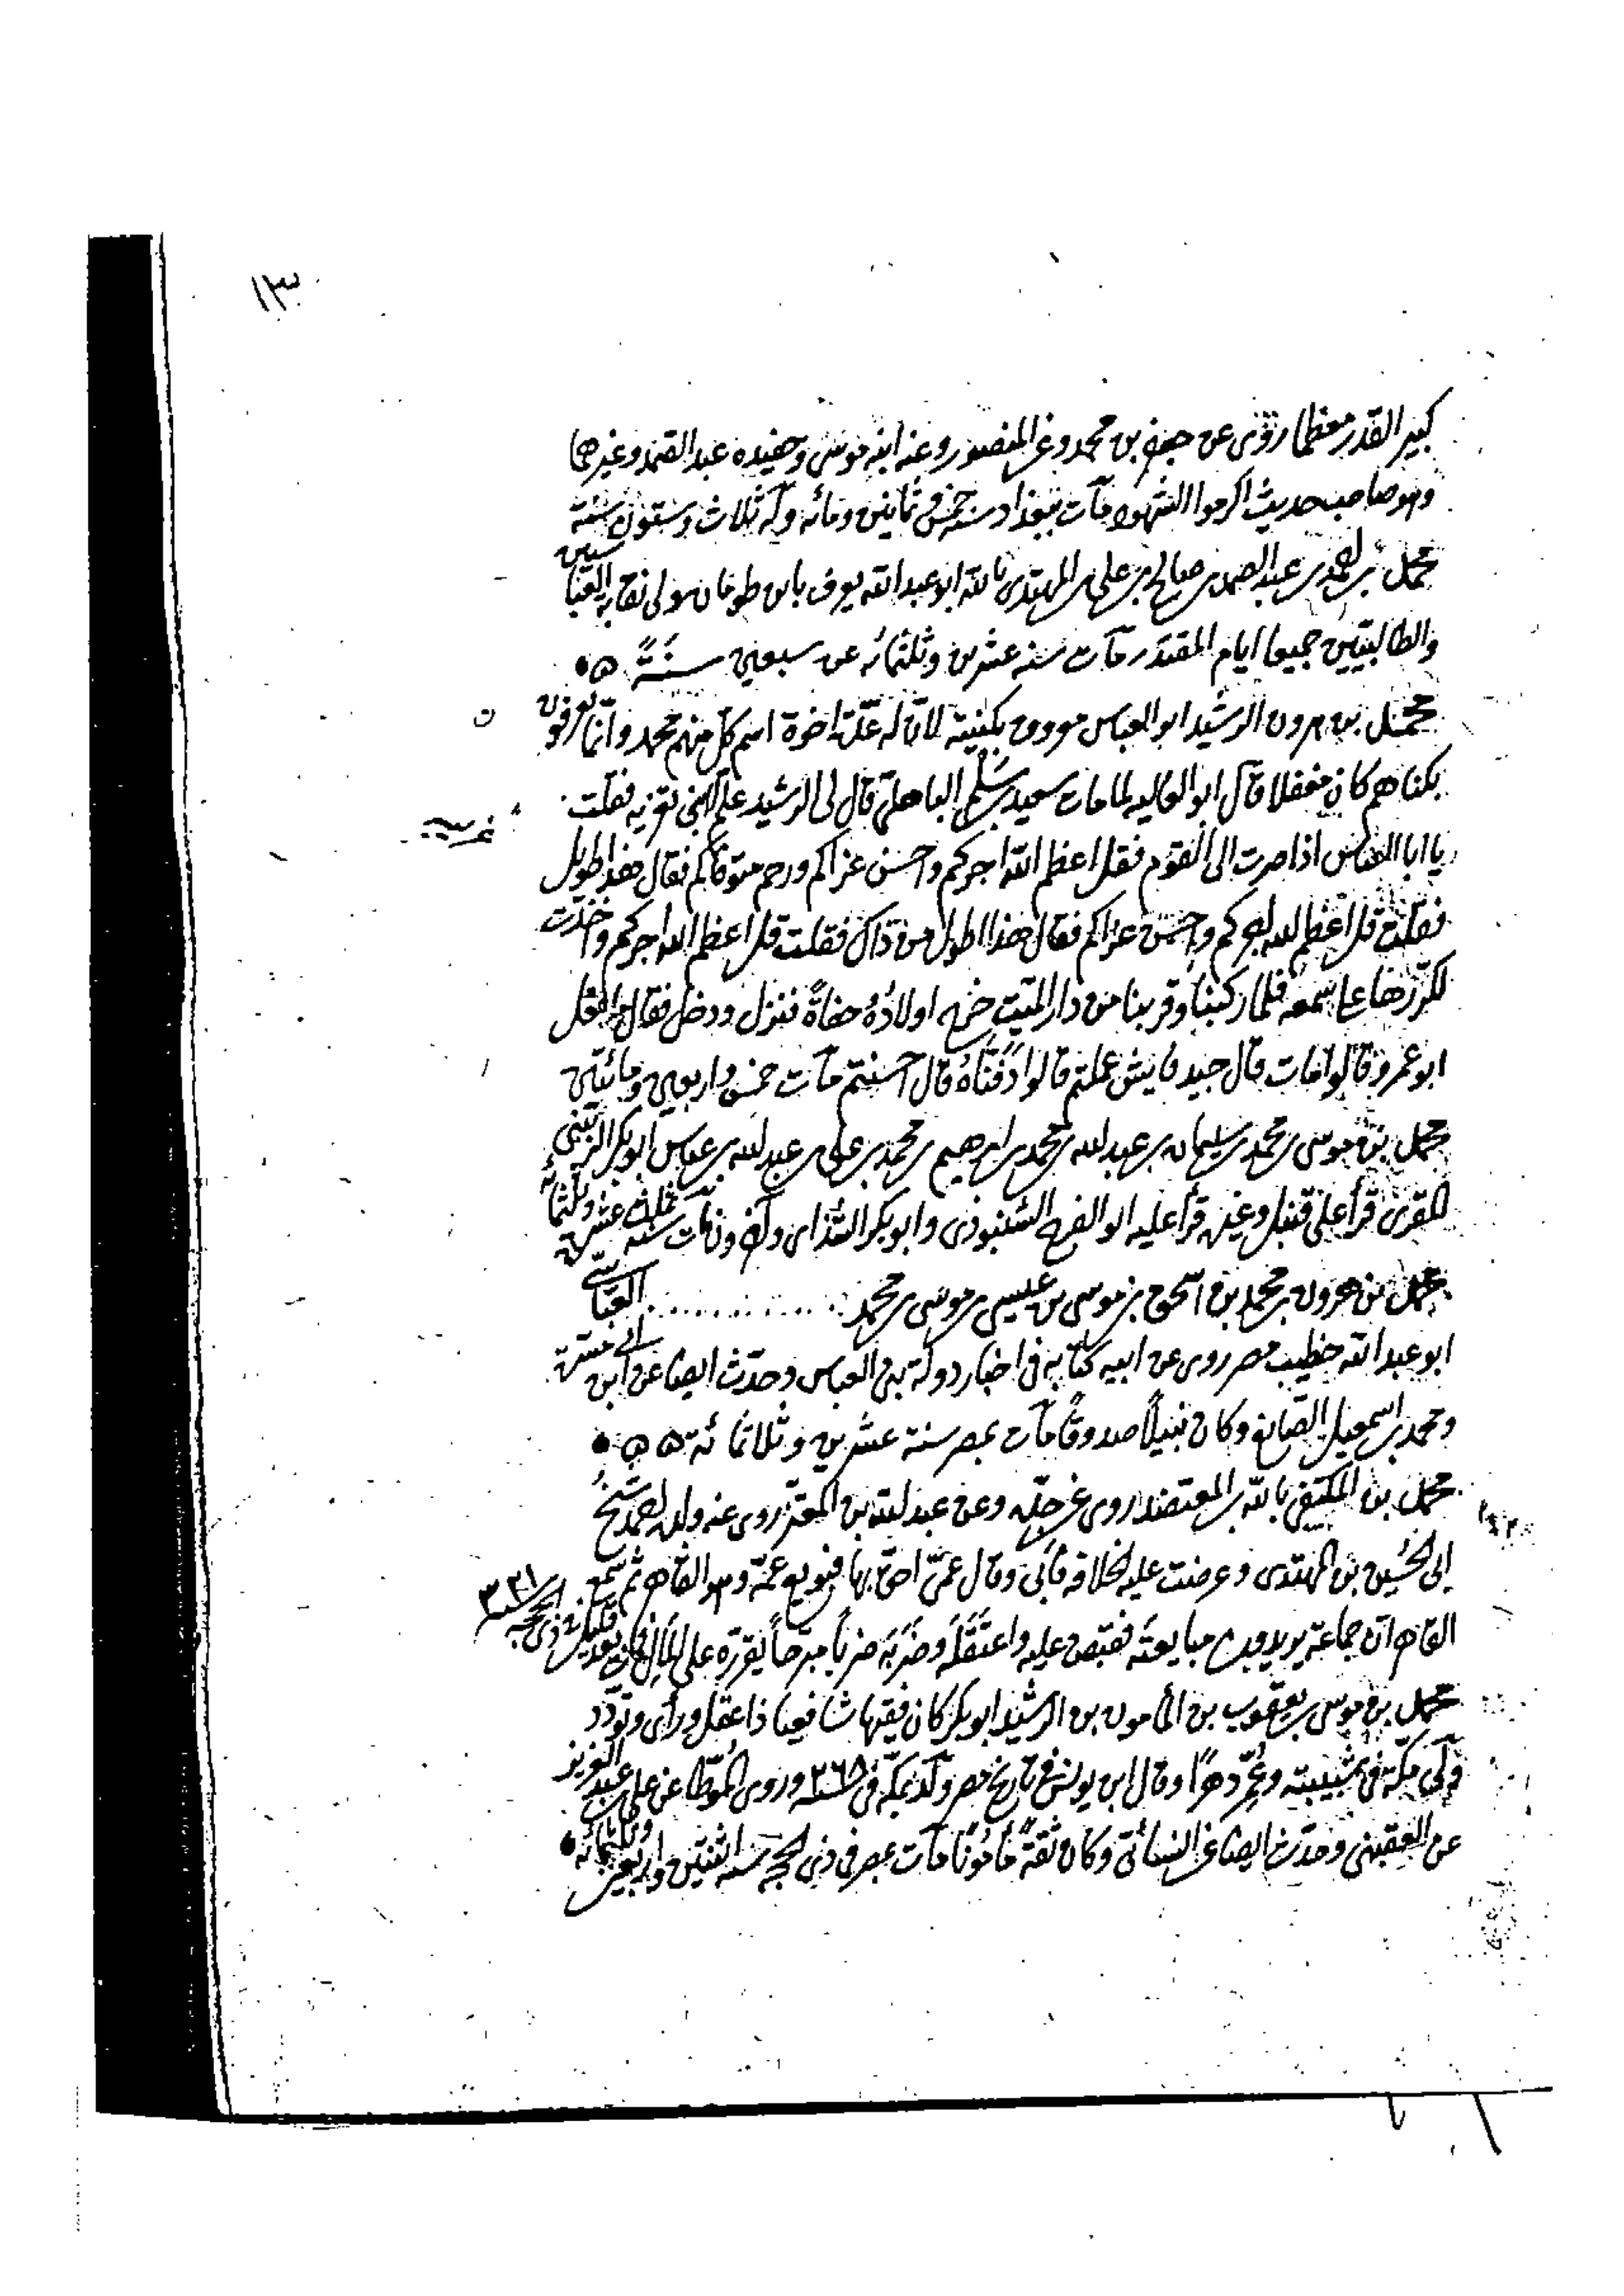 ١٣
كبير القدر معظما روى عن جعفر بن محمد وعن المنصور وعنه ابنه موسى وحفيده عبد الصمد وغيرهما
وهو صاحب حديث اكرموا الشهود مات ببغداد سنة خمس وثمانين ومائه وله ثلاث وستون سنة
محمد بن احمد بن عبد الصمد بن صالح بن علي بن المهتدى بالله ابو عبد الله يعرف بابن طومار ولى نقابة العباسيين
والطالبيين جميعا ايام المقتدر مات سنه عشرين وثلثمائه عن سبعين سنةً
محمد بن هرون الرشيد ابو العباس معروف بكنيته لان له عدّة اخوة اسم كل منهم محمد وانما يعرفون ن
بكناهم كان مغفلا قال ابو العاليه لما مات سعيد بن سلم الباهلي قال لى الرشيد علم ابنى تعزيه فقلت
يا ابا العباس اذا صرت الى القوم فقل اعظم الله اجركم واحسن عزاكم ورحم متوفاكم فقال هذا طويل
فقلت قل اعظم الله اجركم واحسن عزاكم فقال هذا اطول من ذاك فقلت قل اعظم الله اجركم واخذت
لكررها على سمعه فلما ركبنا وقربنا من دار الميت خرج اولادُهُ حفاةً فنزل ودخل فقال ما فعل
ابو عمرو قالوا مات قال جيد فايش عملتم قالوا دَفَنَّاهُ قال احسنتم مات خمس واربعين ومائتين
محمد بن موسى بن محمد بن سليمان بن عبد الله بن محمد بن ابرهيم بن محمد بن علي بن عبد الله بن عباس ابو بكر الزينبى
المقرئ قرأ على قنبل وغيره قرأ عليه ابو الفرج الشنبوذى وابو بكر الشذاى وآخرون مات سنه ثلث عشرة وثلثمائه
محمد بن هرون بن محمد بن اسحق بن موسى بن عيسى بن موسى بن محمد ............ العباسي
ابو عبد الله خطيب مصر روى عن ابيه كتابه فى اخبار دولة بنى العباس وحدّث ايضا عن ابن ابي ميسرة
ومحمد بن اسمعيل الصايغ وكان نبيلاً صدوقًا مات بمصر سنة عشرين وثلاثمائة
محمد بن المكتفى بالله بن المعتضد روى عن جدّه وعن عبد الله بن المعتز روى عنه ولده احمد شيخ
ابى الحُسَين بن المهتدى وعرضت عليه الخلافه فأبى وقال عمّى احقّ بها فبويع عمّه وهو القاهر ثم سمع
القاهر ان جماعة يريدون مبايعته فقبض عليه واعتَقَلَهُ وضَرَبَه ضربًا مبرحاً يقررّه على المال فمات بعد قليل فى ذى الحجه سنه ٣٢١
محمد بن موسى بن يعقوب بن المامون بن الرشيد ابو بكر كان فقيها شافعيا ذا عقل ورأى وتودّد
ولى مكة فى شبيبته وعُمِّر دهرًا وقال ابن يونس فى تاريخ مصر ولد بمكة فى سنه ٢٦٨ وروى الموطّا عن علي بن عبد العزيز
عن القعنبى وحدّث ايضا عن النسائيّ وكان ثقةً مأمونًا مات بمصر فى ذى الحجه سنه اثنتين واربعين وثلثمائه